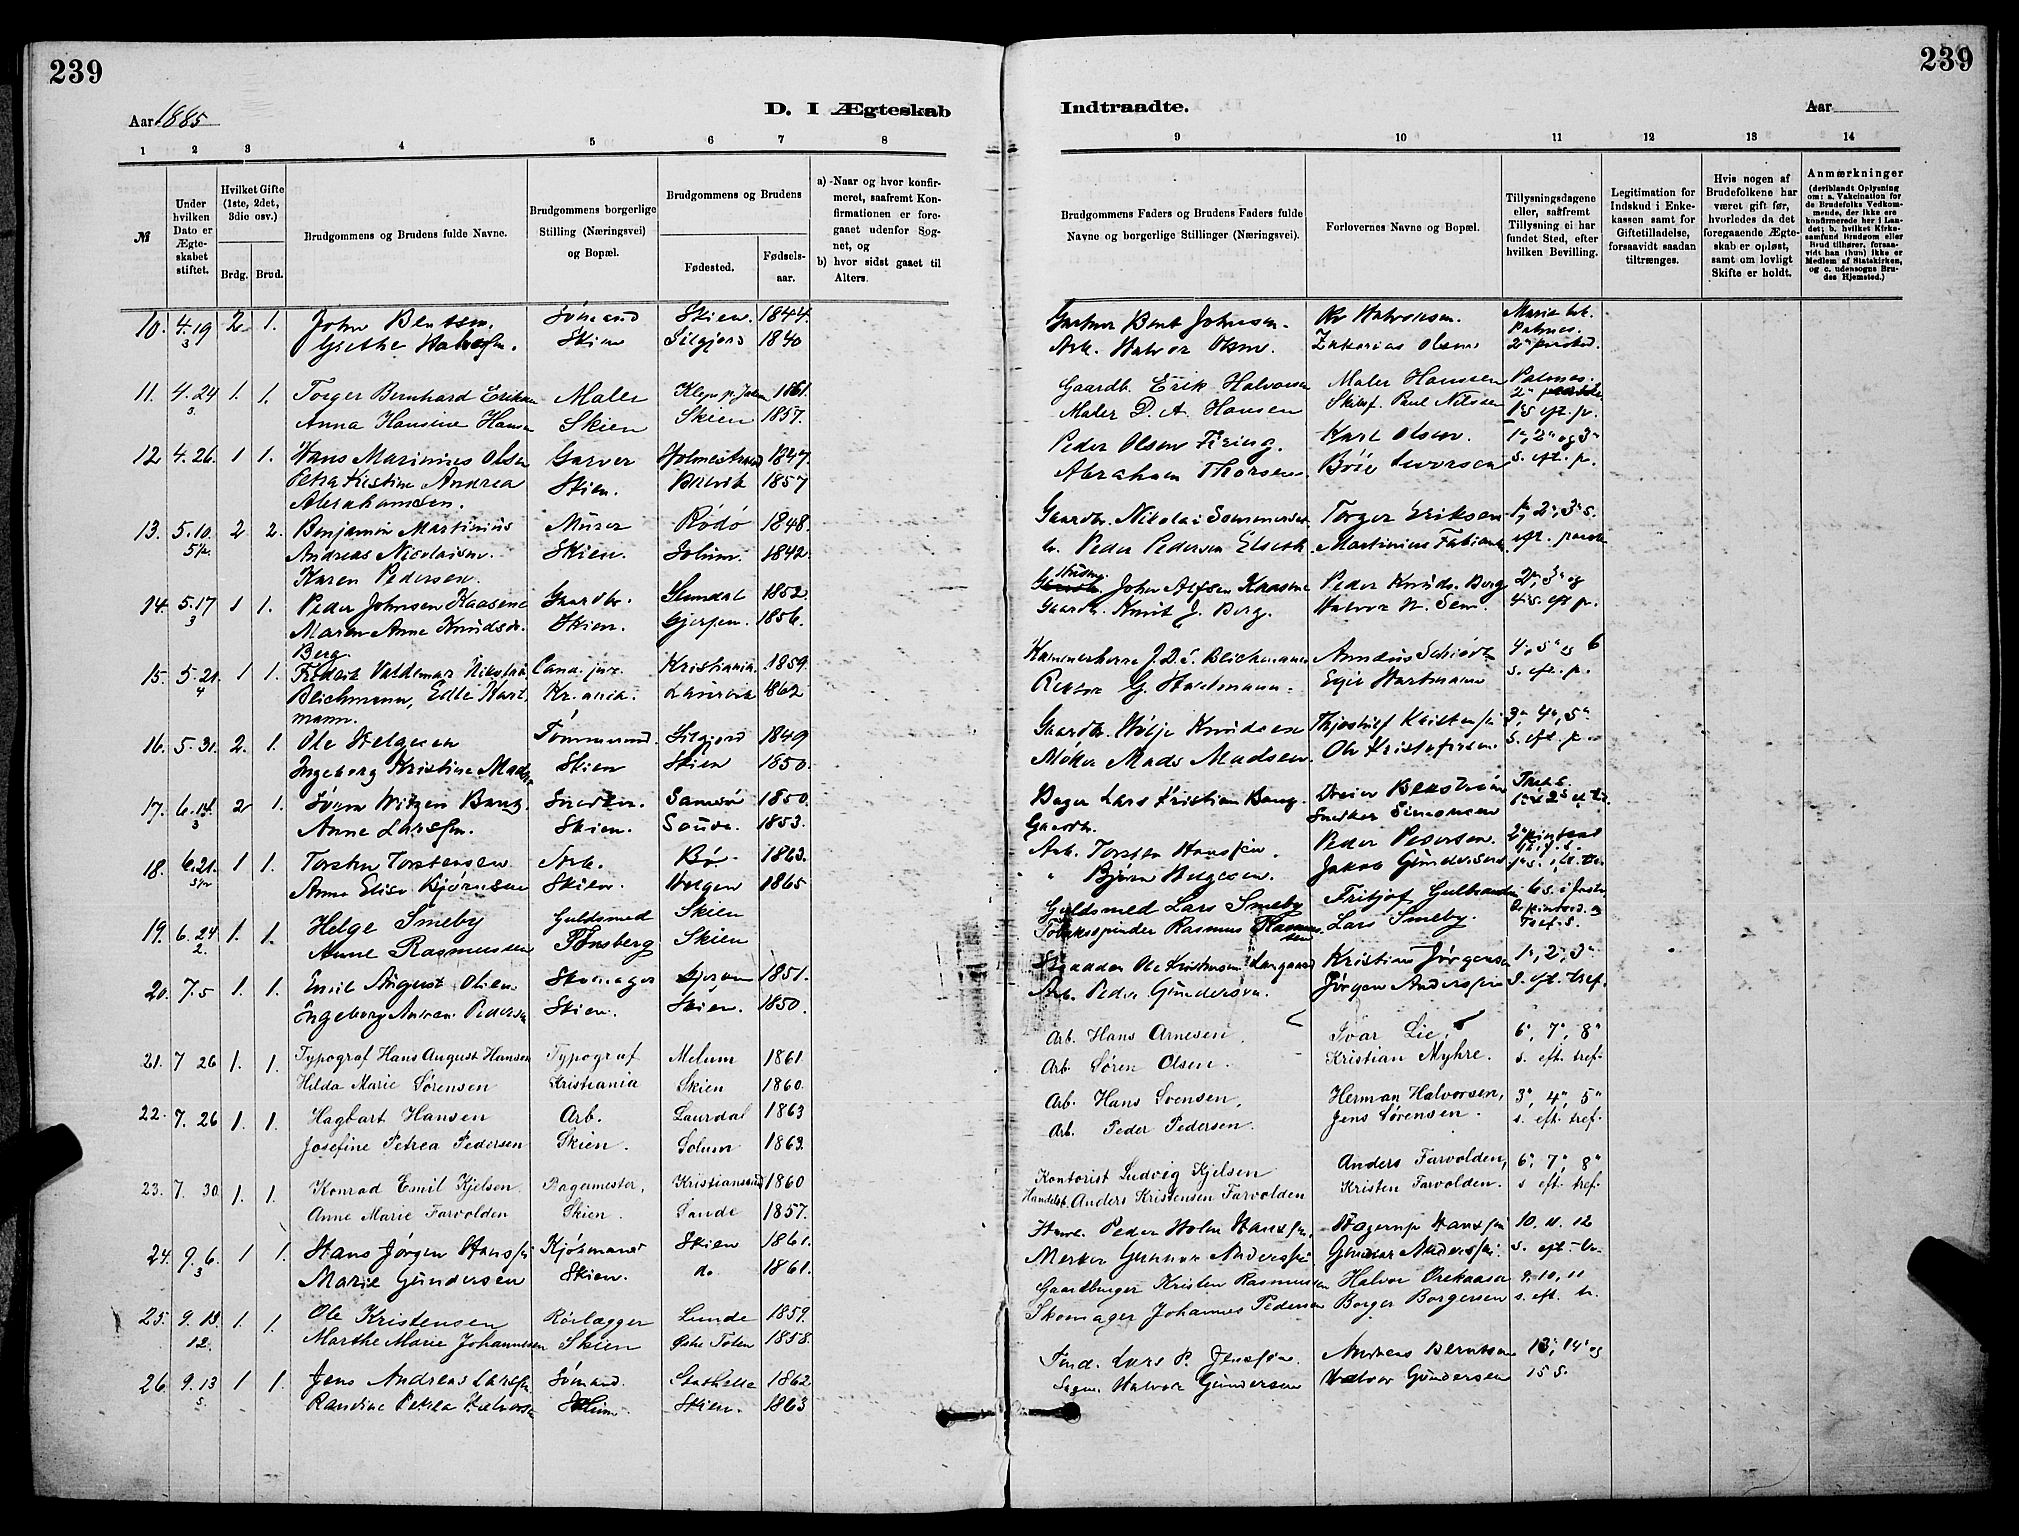 239
239
Aar 1885
D. I Ægteskab
Indtraadte.
Aar
1 2 3 4 5 6 7 8
9 10 11 12 13 14
№
Under hvilken Dato er Ægteskabet stiftet.
Hvilket Gifte (1ste, 2det, 3die osv.)
Brdg. Brud.
Brudgommens og Brudens fulde Navne.
Brudgommens borgerlige Stilling (Næringsvei) og Bopæl.
Brudgommens og Brudens
Fødested.
Fødselsaar.
a) Naar og hvor konfirmeret, saafremt Konfirmationen er foregaaet udenfor Sognet, og
b) hvor sidst gaaet til Alters.
Brudgommens Faders og Brudens Faders fulde Navne og borgerlige Stillinger (Næringsvei).
Forlovernes Navne og Bopæl.
Tillysningsdagene eller, saafremt Tillysning ei har fundet Sted, efter hvilken Bevilling.
Legitimation for Indskud i Enkekassen samt for Giftetilladelse, forsaavidt saadan tiltrænges.
Hvis nogen af Brudefolkene har været gift før, hvorledes da det foregaaende Ægteskab er opløst, samt om lovligt Skifte er holdt.
Anmærkninger
(deriblandt Oplysning om: a. Vakcination for de Brudefolks Vedkommende, der ikke ere konfirmerede her i Landet; b. hvilket Kirkesamfund Brudgom eller Brud tilhører, forsaavidt han (hun) ikke er Medlem af Statskirken, og c. udensogns Brudes Hjemsted.)
10. 4.19 2. 1. John Bentsen. Sømand Skien. 1844. Gartner Bent Johnsen. Halvorsen.
3 Grethe Halvorsen. Skien Silgjord 1840 Arb. Halvor Olsen. Zakarias Olsen
11. 4.24 1. 1. Torger Bernhard Eriksen Maler 1861. Gaardb. Erik Halvorsen Maler Hanssen Palmes.
3. Anna Hansine Hansen Skien Skien 1857. Maler D. A. Hansen Paul Nilsen
12 4.26. 1 1. Hans Marinius Olsen Garver Holmestrand 1847. Peder Olsen Firing. Karl Olsen. 1ˢ, 2ˢ og 3ˢ
Petra Kistine Andrea Skien. Brevik 1857 Abraham Thorsen Böie Iversen s. eft. p.
Abrahamsen.
13. 5.10. 2 2. Benjamin Martinius Murer Rödö 1848. Gaardbr. Nikolai Torger Eriksen 1ˢ, 2ˢ, 3ˢ s.
Andreas Nicolaisen. Skien. Solum. 1842. Peder Pedersen Martinius Fabian
Karen Pedersen.
14. 5.17 1 1. Peder Johnsen Kaasene Gaardbr. Slemdal 1852. John Alfsen Kaasene Peder Knuds. Berg 2ˢ, 3ˢ og
3 Maren Anne Knudsdr. Skien. Gjerpen. 1856. Gaardb. Knut J. Berg. Halvor N. Sem. 4 s. eft p.
Berg.
15. 5.21 1 1. Fredrik Valdemar Nikolai Cand. jur. Kristiania. 1859. Kammerherre Blichmann 4, 5 og 6
4 Blichmann, Edle Hart Kr.ania. Laurvik 1862 Rektor G. Hartmann. Hartmann s. eft. p.
mann.
16. 5.31. 2. 1. Ole Helgesen Tømmermd. Silgjord 1849 Gaardbr. Knudsen 3ˢ, 4ˢ, 5ˢ
Ingeborg Kristine Madsen Skien Skien 1850. Mads Madsen. Ole Kristofersen. s. eft. p.
17. 6.14. 2 1. Bang. Snedker. Samsö 1850. Bager Lars Kristian Bang.
3 Anne Larsen. Skien. Soude. 1853. Gaardb. Snedker Simonsen
18. 6.21. 1 1. Torsten Torstensen Arb. Bö. 1863. Arb. Torsten Hanssen. Peder Pedersen.
Anne Elise Bjørnsen Skien. Holgen 1865 „ Bjørn Helgesen. Jakob Gundersen
19. 6.24 1. 1. Helge Smeby Guldsmed Skien Guldsmed Lars Smeby Fritjof Gulbrandsen
2. Anne Rasmussen Tønsberg Skien Tobakspinder Rasmus Rasmussen Lars Smeby.
20. 7.5 1. 1. Emil August Olsen. Skomager Gjerpen 1851. Ole Kristensen Langaard Kristian Jørgensen 1ˢ, 2ˢ, 3ˢ
Ingeborg Andrea Pedersen Skien. Skien. 1850. Arb. Peder Gundersen. Jørgen Anderssen s. eft. tref.
21. 7 26 1. 1. Typograf Hans August Hansen Typograf Melum 1861. Arb. Hans Arnesen. Ivar Lie, 6ˢ, 7ˢ, 8ˢ
Hilda Marie Sørensen Kristiania Skien 1860. Arb. Søren Olsen. Kristian Myhre. s. eft. tref.
22. 7. 26 1. 1. Hagbart Hansen Arb. Laurdal 1863 Arb. Hans Svensen, Herman Halvorsen, 3ˢ, 4ˢ, 5ˢ
Josefine Petrea Pedersen Skien. Solum 1863. Arb. Peder Pedersen. Jens Sørensen. s. eft. tref.
23. 7. 30. 1. 1. Konrad Emil Kjelsen. Bagermester, Kristiansand 1860 Kontorist Ludvig Kjelsen Anders Farvolden, 6ˢ, 7ˢ, 8ˢ
Anne Marie Farvolden Skien. Sande 1857. Handelsb. Anders Kristensen Farvolden Kristen Farvolden. s eft. tref.
24. 9.6. 1 1. Hans Jørgen Hanssen Kjøbmand Skien 1861. Peder Holm Hanssen, Hagerup Hanssen 10. 11. 12
3 Marie Gundersen Skien. do 1861. Gunnar Anderssen Gunnar Anderssen s. eft. tr.
25. 9. 13. 1. 1. Ole Kristensen Rørlægger Lunde 1859. Gaardbruger Kristen Rasmussen Halvor Orekaasa 9, 10, 11
12. Marthe Marie Johannessen Skien Østre Toten 1858. Skomager Johannes Pedersen Borger Borgersen s. eft. tr.
26. 9.13 1 1. Jens Andreas Larssen Sømand. Stathelle 1862 Lars P. Jenssen. Andreas Berntsen 13ˢ, 14ˢ og
5. Randine Petrea Halvorsen Skien. Skien. 1863 Halvor Gundersen Halvor Gundersen 15 S.